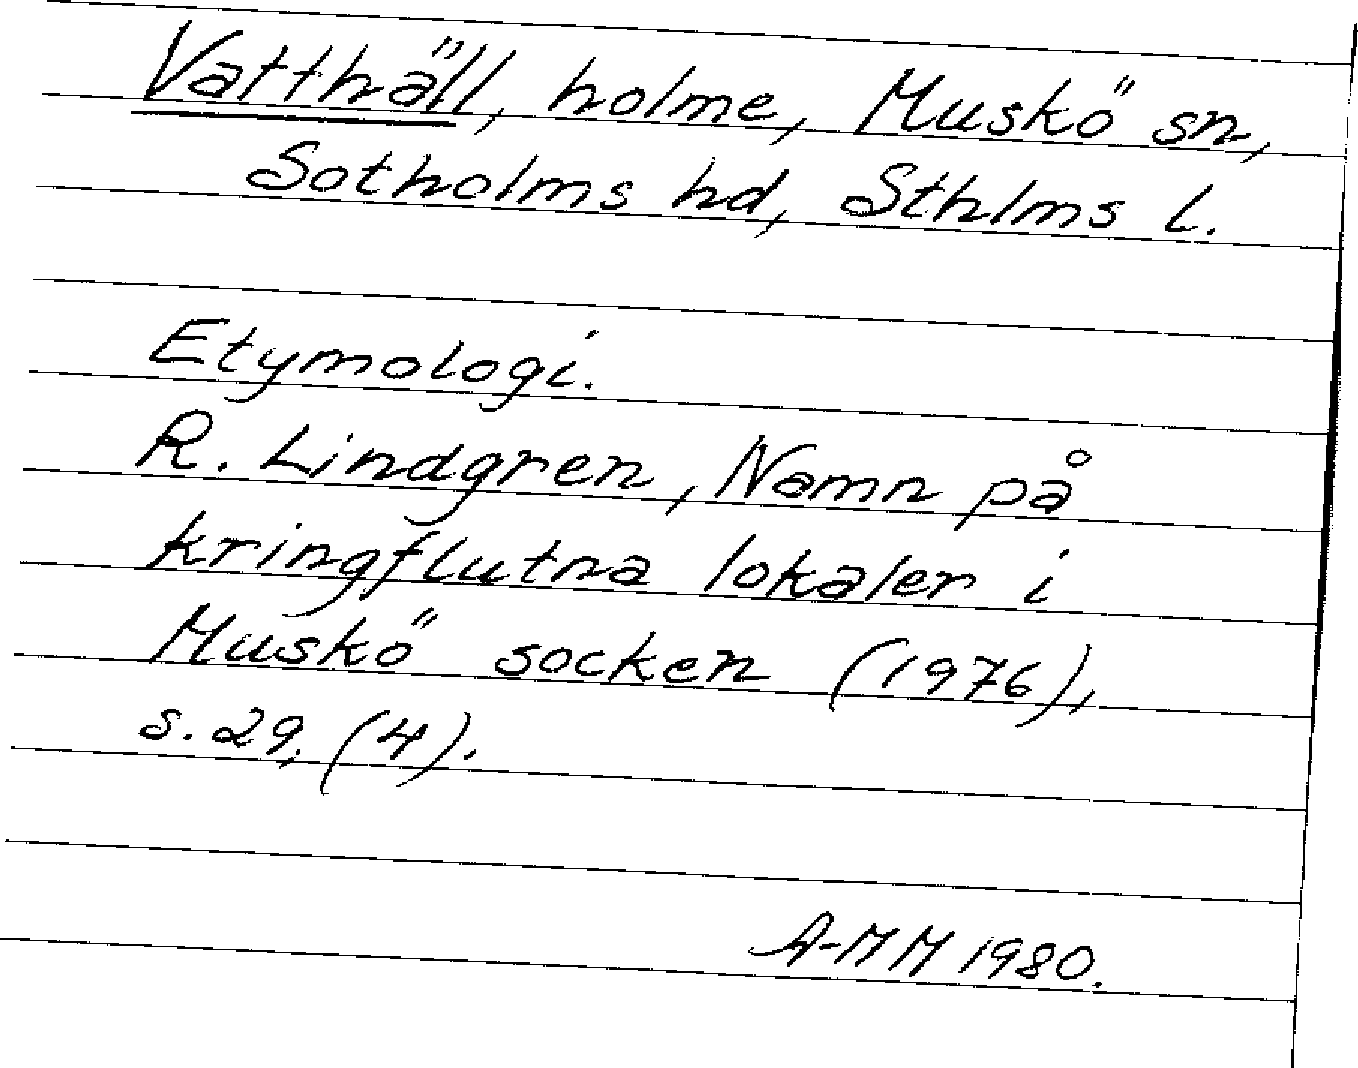 Vatthäll, holme, Muskö sn,
Sotholms hd, Sthlms l.
Etymologi.
R. Lindgren, Namn på
kringflutna lokaler i
Muskö socken (1976),
s. 29, (4).
A-MM 1980.